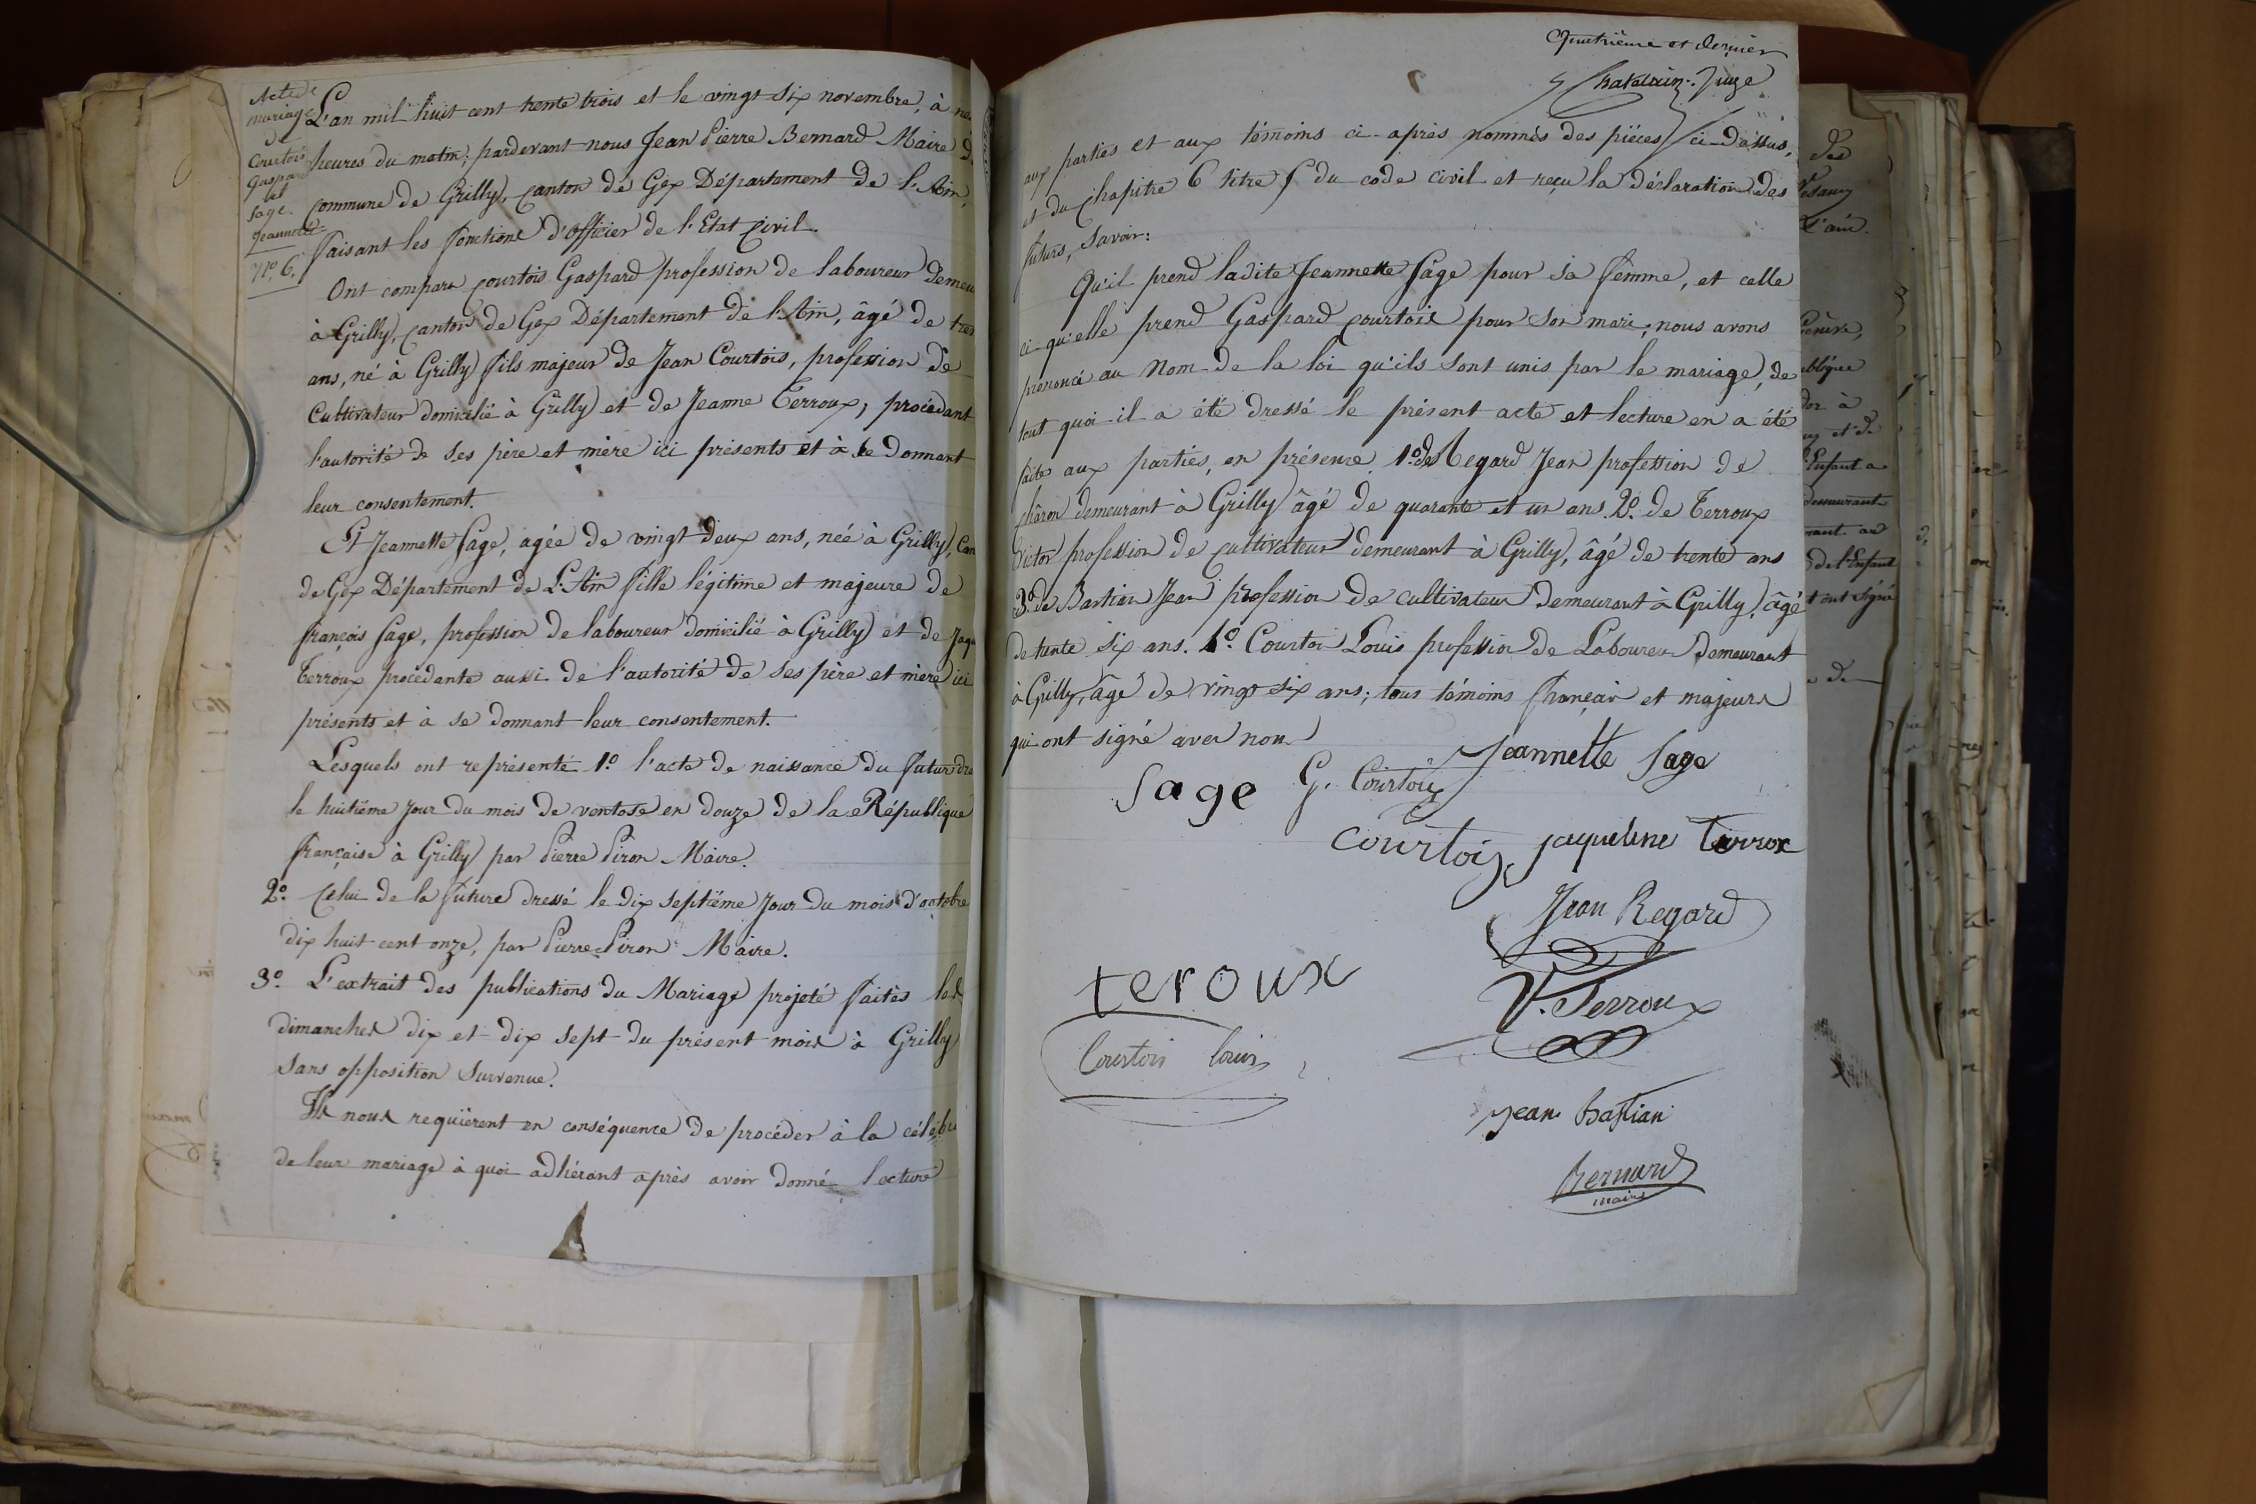 Acte de
mariage
de
Courtois
Gaspard
et
Sage
Jeannette
N.º 6.
L'an mil huit cent trente trois et le vingt six novembre, à
heures du matin; pardevant nous Jean Pierre Bernard Maire
commune de Grilly, canton de Gex Département de l'Ain,
faisant les fonctions d'officier de l'Etat Civil.
Ont comparu Courtois Gaspard profession de laboureur demeu
à Grilly, canton de Gex Département de l'Ain, âgé de
ans, né à Grilly fils majeur de Jean Courtois, profession de
Cultivateur domicilié à Grilly et de Jeanne Terroux; procédant
l'autorité de ses père et mère ici présents et à se donnant
leur consentement.
Et Jeannette Sage, agée de vingt deux ans, née à Grilly, Can
de Gex Département de L'Ain fille légitime et majeure de
françois Sage, profession de laboureur domicilié à Grilly et de Jaqu
Terroux procédente aussi de l'autorité de ses père et mère ici
présents et à se donnant leur consentement.
Lesquels ont représenté 1.º l'acte de naissance du futur
le huitième jour du mois de ventose en douze de la République
française à Grilly par Pierre Piron Maire.
2.º Celui de la future dressé le dix septième jour du mois d'octobre
dix huit cent onze, par Pierre Piron Maire.
3.º L'extrait des publications du Mariage projeté faites les
dimanches dix et dix sept du présent mois à Grilly
sans opposition survenue.
Ils nous requièrent en conséquence de procéder à la célébr
de leur mariage à quoi adhérant après avoir donné lecture
Quatrième et dernier
Juge
aux parties et aux témoins ci-après nommés des pièces ci-dessus,
et du chapitre 6 titre 5 du code civil et reçu la déclaration des
futurs, savoir:
Qu'il prend ladite Jeannette Sage pour sa femme, et celle
ci qu'elle prend Gaspard Courtois pour son mari; nous avons
prononcé au Nom de la loi qu'ils sont unis par le mariage, de
tout quoi il a été dressé le présent acte et lecture en a été
faite aux parties, en présence 1.º de Regard Jean profession de
charon demeurant à Grilly âgé de quarante et un ans 2.º de Terroux
Victor profession de cultivateur demeurant à Grilly, âgé de trente ans
3.º de Bastian Jean profession de cultivateur demeurant à Grilly, âgé
de trente six ans. 4.º Courtois Louis profession de Laboureur demeurant
à Grilly, âgé de vingt six ans; tous témoins français et majeurs
qui ont signé avec nous
Jeannette Sage
Sage G. Courtois
Courtois jaqueline Terrox
Jean Regard
teroux
V. Terroux
Courtois Louis
Jean Bastian
Bernard
maire
des
l'ain.
blique
l'Enfant a
demeurant
de l'Enfant
t ont signé
de